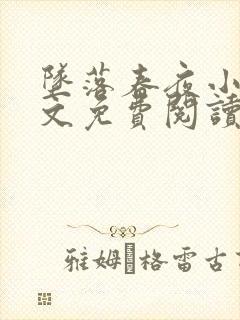 墜落春夜小
文免費閱讀
雅姆·格雷古